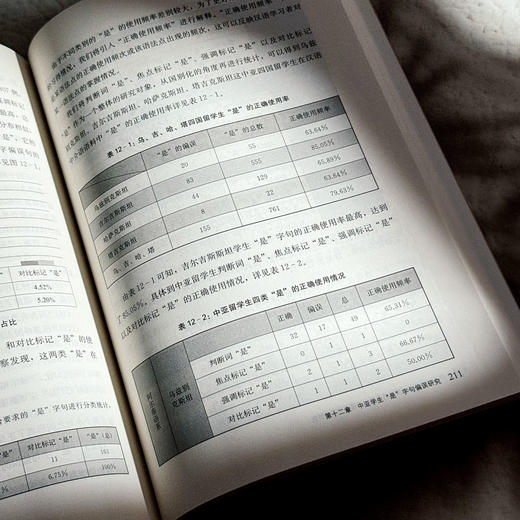 由于不同类别的“是”的使用频率差别较大，为了更
的习得情况，我们将引入“正确使用频率”进行解释。“正确使用频率”
是某语法点的正确使用频次或该语法点出现的频次，这可以反映汉语学习者对
某一语法点的掌握情况。
我们将判断词“是”、焦点标记“是”、强调标记“是”以及对比标记
“是”作为一个整体的研究对象，从国别化的角度再进行统计，可以得到乌兹
别克斯坦、吉尔吉斯斯坦、哈萨克斯坦、塔吉克斯坦这中亚四国留学生在汉语
中介语语料中“是”的正确使用频率详见表12-1。
表12-1：乌、吉、哈、塔四国留学生“是”的正确使用率
“是”的偏误 “是”的总数 正确使用频率
乌兹别克斯坦 20 55 63.64%
吉尔吉斯斯坦 83 555 85.05%
哈萨克斯坦 44 129 65.89%
塔吉克斯坦 8 22 63.64%
乌、吉、哈、塔 155 761 79.63%
由表12-1可知，吉尔吉斯斯坦学生“是”字句的正确使用率最高，达到
了85.05%。具体到中亚留学生判断词“是”、焦点标记“是”、强调标记“是”
以及对比标记“是”的正确使用情况，详见表12-2。
表12-2：中亚留学生四类“是”的正确使用情况
正确 偏误 总 正确使用频率
乌兹别克斯坦
判断词“是” 32 17 49 65.31%
焦点标记“是” 0 1 1
强调标记“是” 2 1 3 66.67%
对比标记“是” 1 1 2 50.00%
第十二章 中亚学生“是”字句偏误研究 211
对比标记“是”
4.52%
5.20%
占比
和对比标记“是”的使
察发现，这两类“是”在
要求的“是”字句进行分类统计，
对比标记“是” “是”（总）
11 161
6.75% 100%